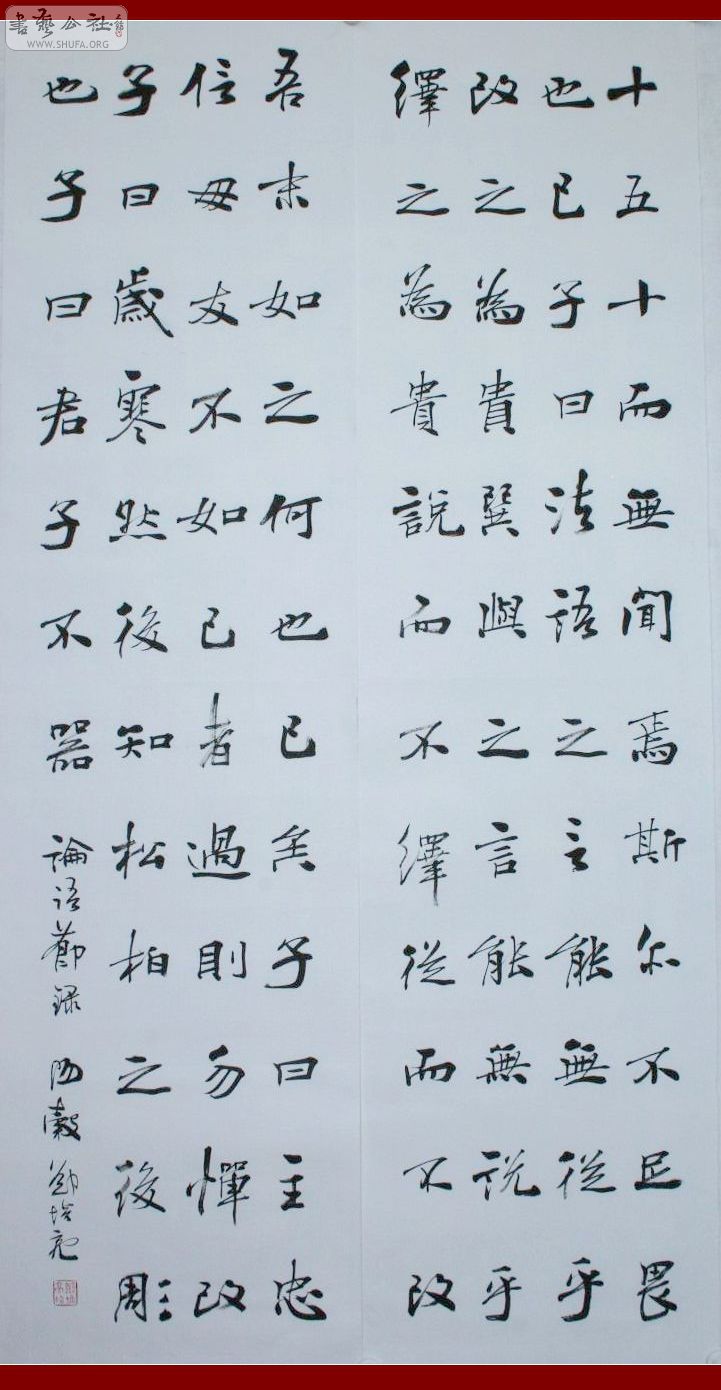 書藝公社
WWW.SHUFA.ORG
十五十而無聞焉斯亦不足畏
也已子曰法語之言能無從乎
改之為貴巽與之言能無說乎
繹之為貴說而不繹從而不改
吾末如之何也已矣子曰主忠
信毋友不如己者過則勿憚改
子曰歲寒然後知松柏之後彫
也子曰君子不器 論語節錄